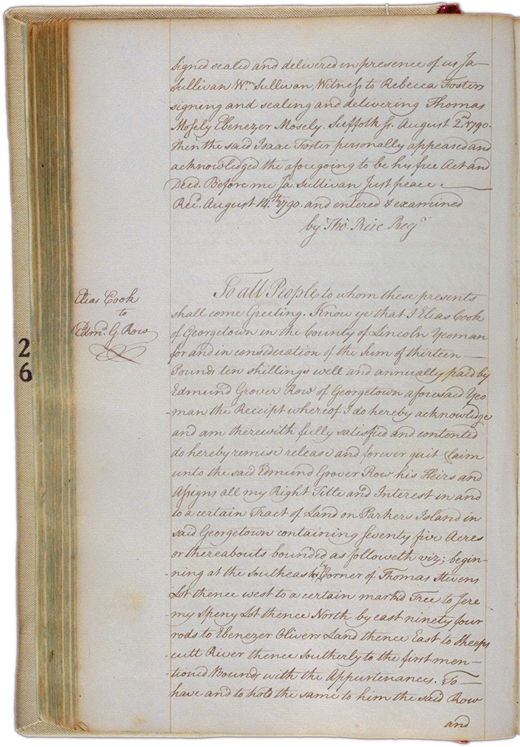 signed sealed and delivered in presence of us Ja
Sullivan Wm Sullivan Witness to Rebecca Fosters
signing and sealing and delivering Thomas
Mosely Ebenezer Mosely. Suffolk Ss. August 2d. 1790.
then the said Isaac Foster personally appeared and
acknowledged the aforegoing to be his free Act and
Deed. Before me Ja. Sullivan Just peace
Rec. August 14th. 1790. and entered & examined
by Tho. Rice Regr
Elias Cook
to
Edmd. G. Row
To all People to whom these presents
shall come Greeting. Know ye that I Elias Cook
of Georgetown in the County of Lincoln Yeoman
for and in consideration of the Sum of thirteen
Pounds ten shillings well and annually paid by
Edmund Grover Row of Georgetown aforesaid Yeo
man the Receipt whereof I do hereby acknowledge
and am therewith fully satisfied and contented
do hereby remise release and forever quit Claim
unto the said Edmund Grover Row his Heirs and
Assigns all my Right Title and Interest in and
to a certain Tract of Land on Parkers Island in
said Georgetown containing seventy five Acres
or thereabouts bounded as followeth viz; begin-
ning at the Southeast Corner of Thomas Stevens
Lot thence west to a certain markd Tree to Jere
my Speny Lot thence North by east ninety four
rods to Ebenezer Olivers Land thence East to Sheeps
cutt River thence Southerly to the first men-
tioned Bounds with the Appurtenances. To
have and to hold the same to him the said Row
and
26